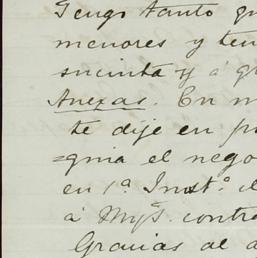 Tengo tanto qu
menores y ten
sucinta y á g
Anexas. En m
te dije en p
=quia el nego
en 1ª Inst.ª el
á Mys. contra
Gracias al a